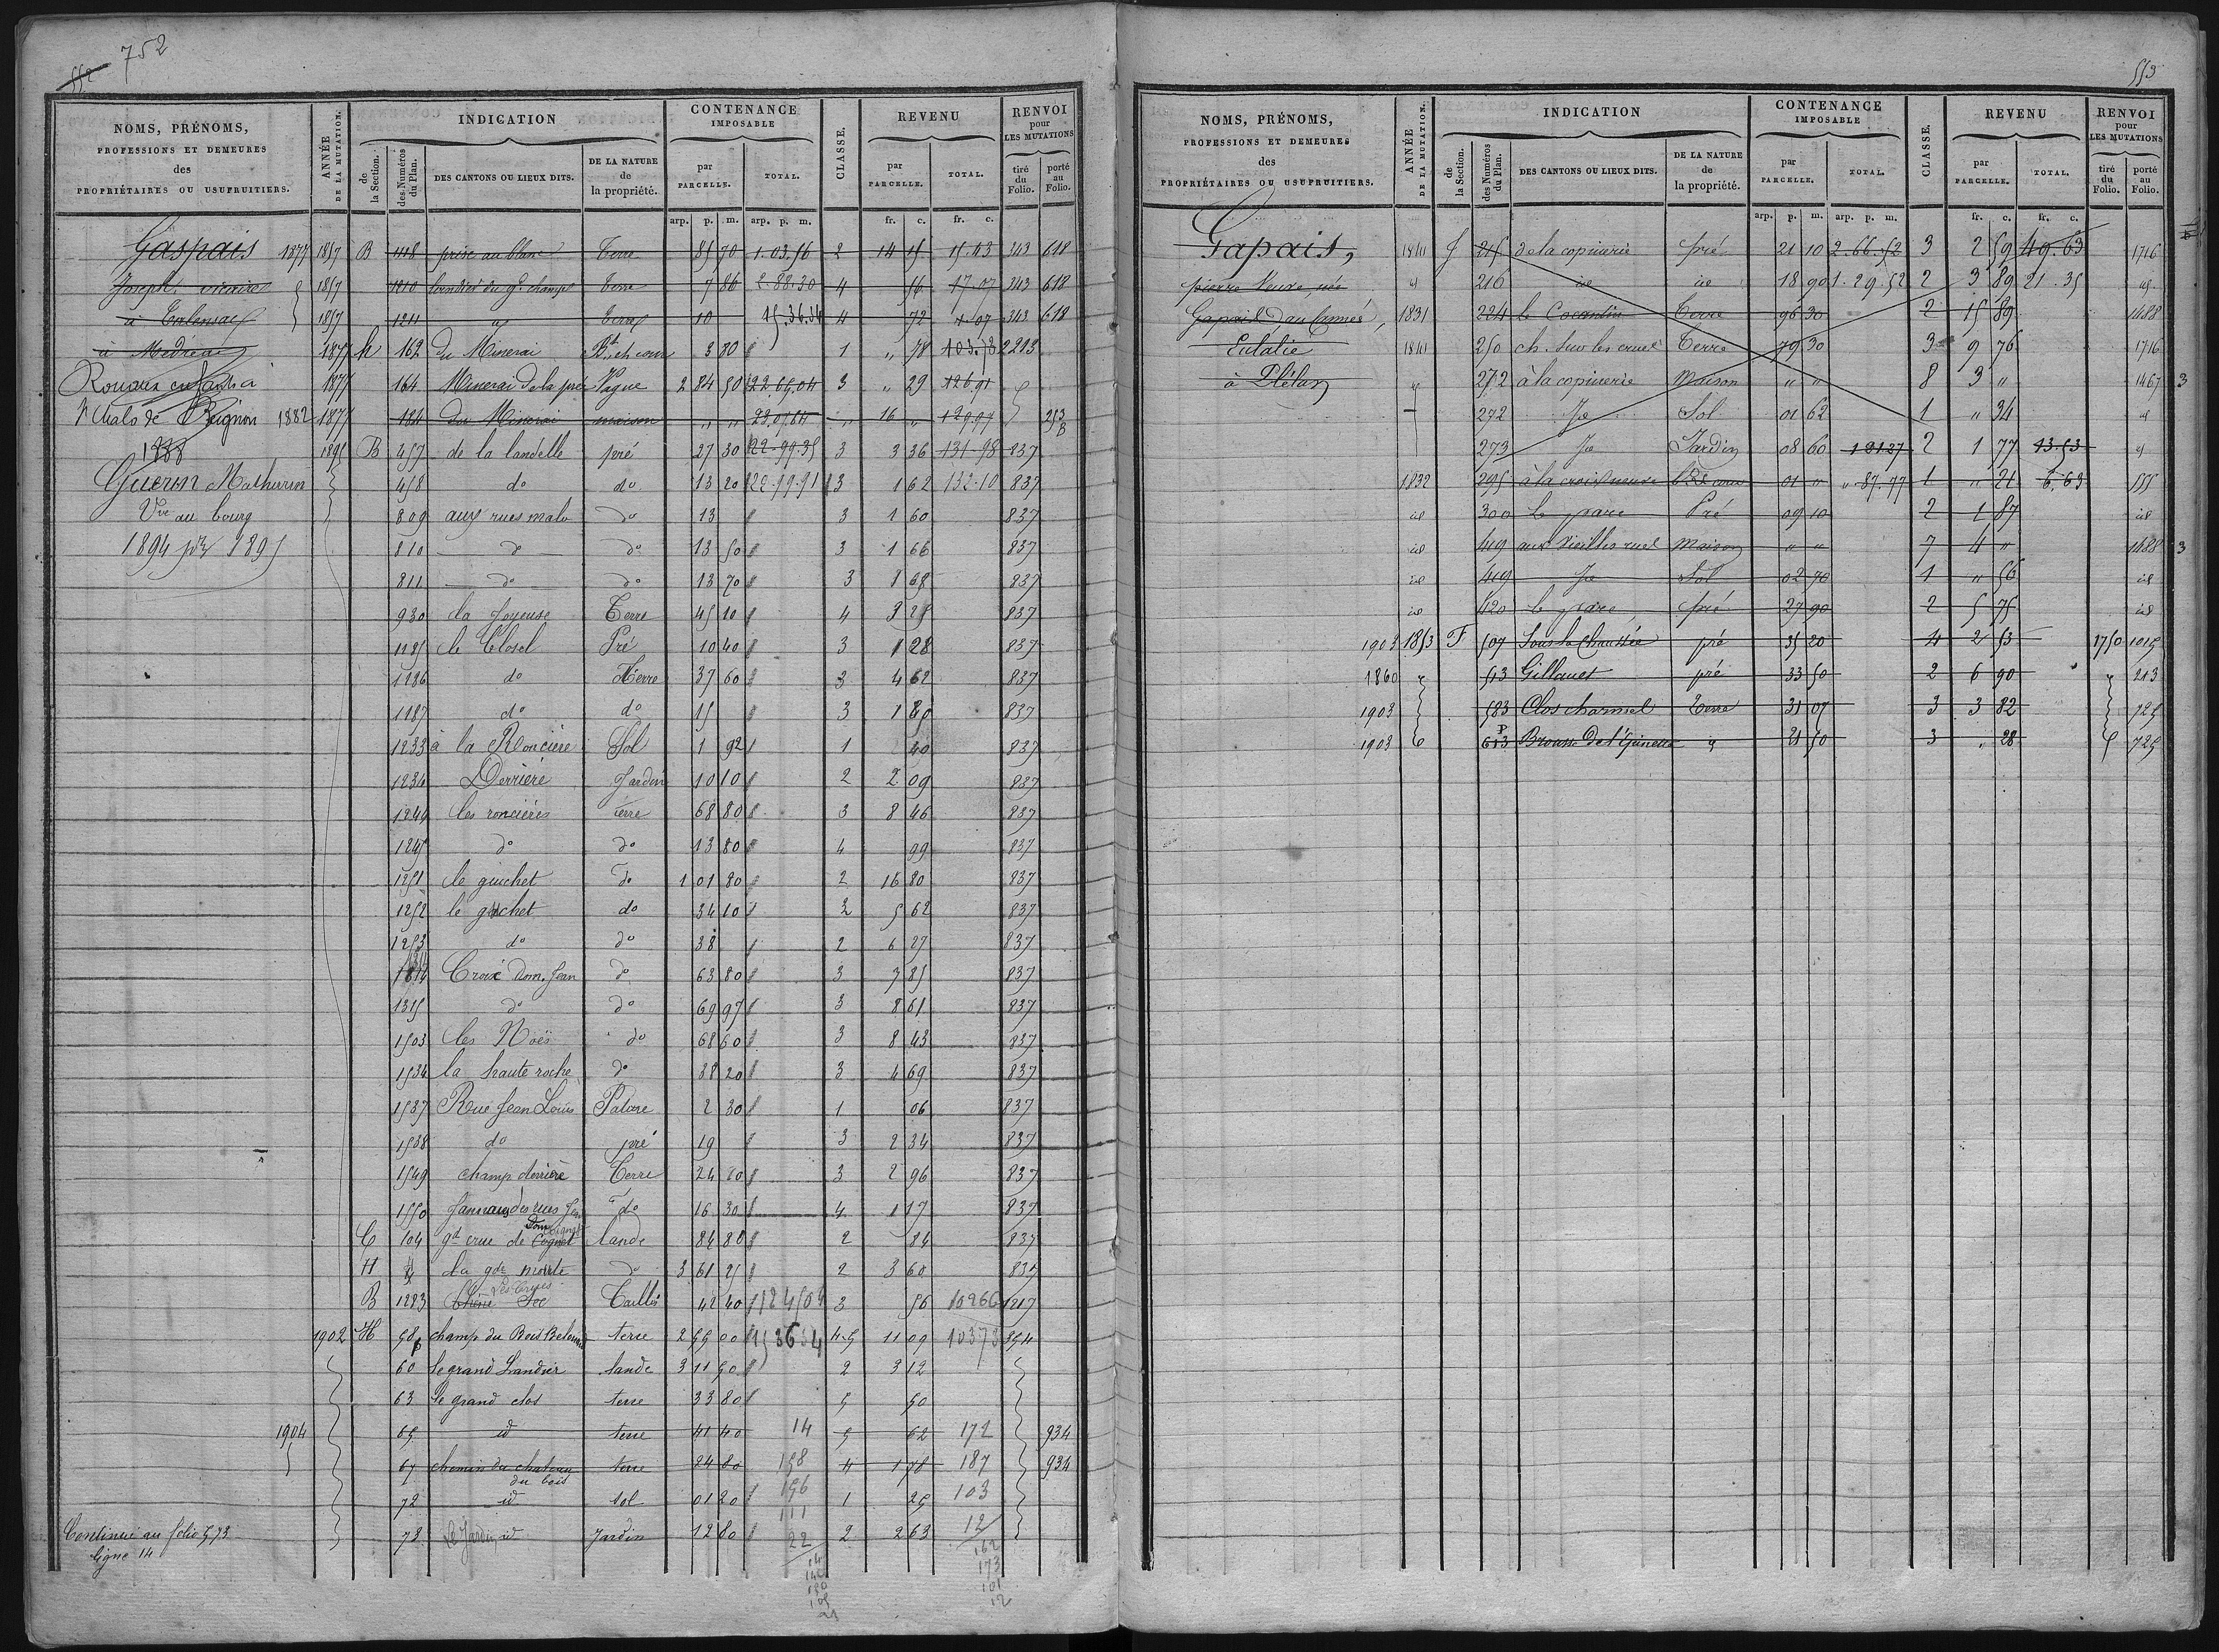 752
552
NOMS, PRÉNOMS,
PROFESSIONS ET DEMEURES
des
PROPRIÉTAIRES OU USUFRUITIERS.
ANNÉE
DE LA MUTATION.
INDICATION
de
la Section.
des Numéros
du Plan.
DES CANTONS OU LIEUX DITS.
DE LA NATURE
de
la propriété.
CONTENANCE
IMPOSABLE
par
PARCELLE.
TOTAL.
CLASSE.
REVENU
par
PARCELLE.
TOTAL.
RENVOI
pour
LES MUTATIONS
tiré
du
Folio.
porté
au
Folio.
arp. p. m. arp. p. m. fr. c. fr. c.
Gaspais 1877 1857 B 1118 prise au blanc Terre 85 70 1.03.56 2 14 15 15.43 343 618
Joseph vicaire 1857 1210 Terre 7 86 2.88.30 4 56 17.07 343 618
à Talensac 1857 1211 Terre 10 15.36.34 4 72 343 618
à Médréac 1877 h 162 du Minerai Bt et cour 3 80 1 " 78 103.78 2213
1877 164 Minerai de la prée Vague 2 84 50 22.05.04 3 " 29 126.91
St Malo de Beignon 1882 1877 184 du Minerai maison " " 22.07.64 " 16 " 129.97 253
1888 1895 B 457 de la landelle pré 27 30 22-99.35 3 3 36 131-98 837
Guerin Mathurin 458 do do 13 20 22-99-91 3 1 62 132-10 837
Vve au bourg 809 aux rues malo do 13 3 1 60 837
1894 pr 1895 810 do do 13 50 3 1 66 837
811 do do 13 70 3 1 68 837
930 la Joyeuse Terre 45 10 4 3 25 837
1185 le Closel Pré 10 40 3 1 28 837
1186 do Terre 37 60 3 4 62 837
1187 do do 15 3 1 85 837
1233 à la Roncière Sol 1 92 1 40 837
1234 Derrière Jardin 10 10 2 2 09 837
1249 les roncières terre 68 80 3 8 46 837
1245 do do 13 80 4 99 837
1251 le guichet do 1 01 80 2 16 80 837
1252 le guichet do 34 10 2 5 62 837
1253 do do 38 2 6 27 837
1314 Croix dom. Jean do 63 80 3 7 85 837
1315 do do 69 97 3 8 61 837
1503 les Noës do 68 60 3 8 43 837
1534 la haute roche do 38 20 3 4 69 837
1537 Rue Jean Louis Pature 2 30 1 06 837
1538 do pré 19 3 2 34 837
1549 champ derrière Terre 24 20 3 2 96 837
1550 do 16 30 4 1 17 837
C 104 gd crue de lande 84 80 2 84 837
H la gde do 3 61 25 2 3 60 837
B 1223 Les Crues Sec Taillis 42 40 3 56 10266 1217
1902 H 58 champ du Bois terre 2 55 00 153634 4-5 11 09 10373 354
60 le grand Landier lande 3 11 50 2 3 12
63 le grand clos terre 33 80 5 50
1904 65 id terre 41 40 14 5 62 172 934
67 chemin du chateau terre 24 80 158 4 1 78 187 934
du bois
72 id sol 01 20 156 1 25 103
111
78 Le Jardin id Jardin 12 80 22 2 2 63 12
Continué au folio 573
ligne 14
162
173
101
12
553
NOMS, PRÉNOMS,
PROFESSIONS ET DEMEURES
des
PROPRIÉTAIRES OU USUFRUITIERS.
ANNÉE
DE LA MUTATION.
INDICATION
de
la Section.
des Numéros
du Plan.
DES CANTONS OU LIEUX DITS.
DE LA NATURE
de
la propriété.
CONTENANCE
IMPOSABLE
par
PARCELLE.
TOTAL.
CLASSE.
REVENU
par
PARCELLE.
TOTAL.
RENVOI
pour
LES MUTATIONS
tiré
du
Folio.
porté
au
Folio.
arp. p. m. arp. p. m. fr. c. fr. c.
Gapais, 1841 f 215 de la copinerie pré 21 10 2.66.52 3 2 59 49.63 1716
pierre 216 id id 18 90 1.29.52 2 3 89 21.35 id
1831 224 le Cocantin Terre 96 30 2 15 89 1488
Eulalie 1841 250 ch. sur les crues Terre 79 30 3 9 76 1716
à Plélan 272 à la copinerie Maison " " 8 3 " 1467 3
272 Je Sol 01 62 1 " 34 id
273 Je Jardin 08 60 1 21.27 2 1 77 13.53 id
1832 295 01 " " 87.77 1 " 21 6.63 555
id 300 le parc Pré 09 10 2 1 87 id
id 419 aux vieilles rues Maison " " 7 4 " 1488 3
id 419 Je Sol 02 70 1 " 56 id
id 420 le parc pré 27 90 2 5 75 id
1903 1853 F 507 Sous la Chaussée pré 35 20 4 2 53 1750 1015
1860 513 Gillouet pré 33 50 2 6 90 213
1903 583 Clos charmel Terre 31 07 3 3 82 725
1903 613 p 21 50 3 " 28 725